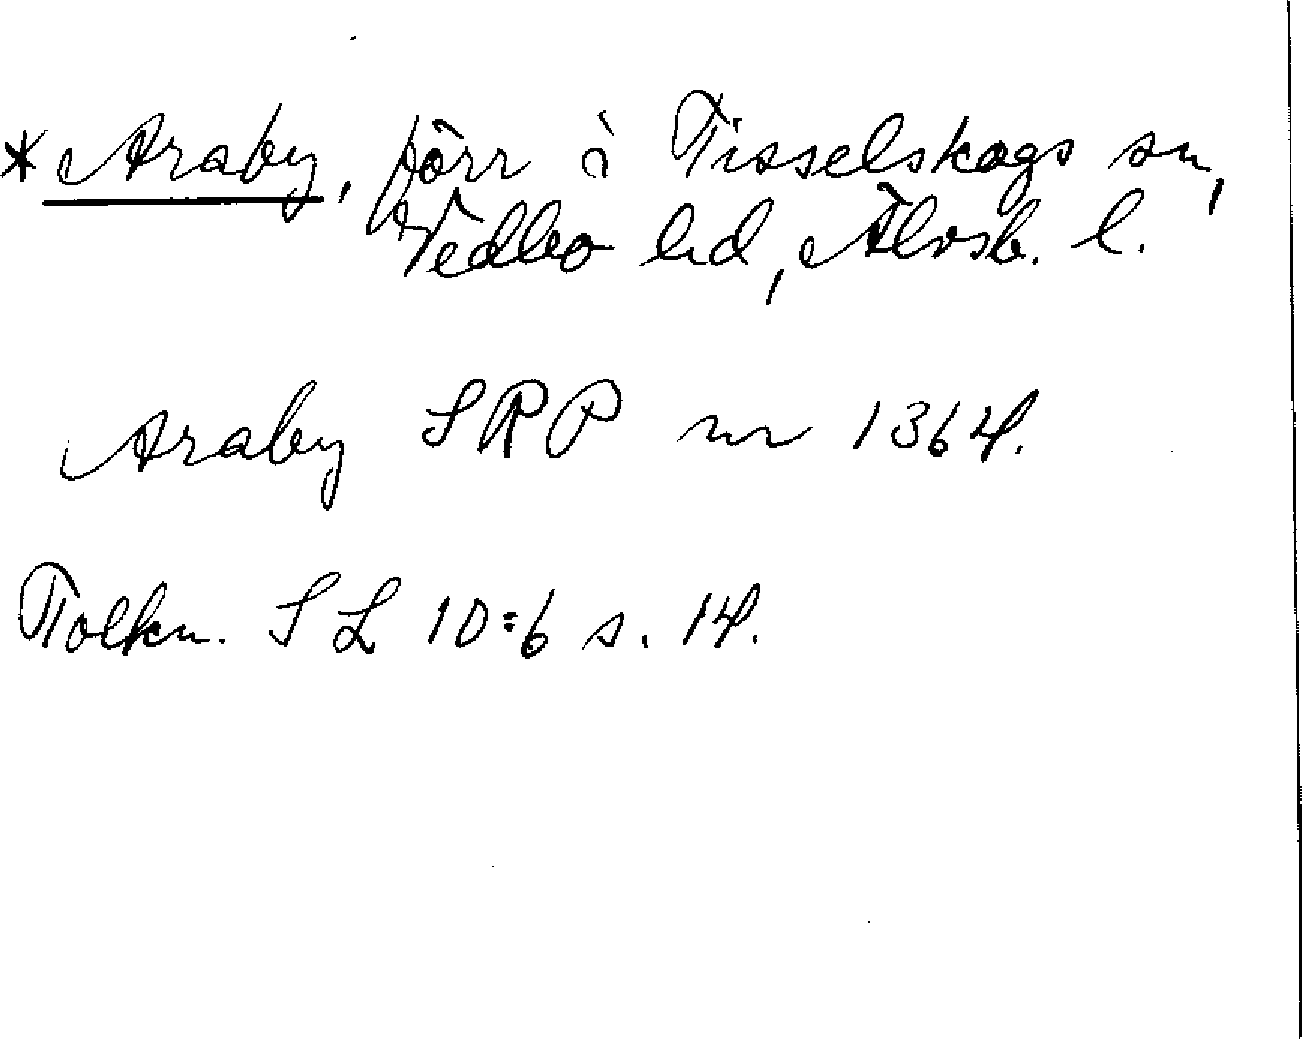 * Araby, förr i Tisselskogs sn,
Vedbo hd, Älvsb. l.
Araby SRP nr 1364.
Tolkn. SL 10:6 s. 14.